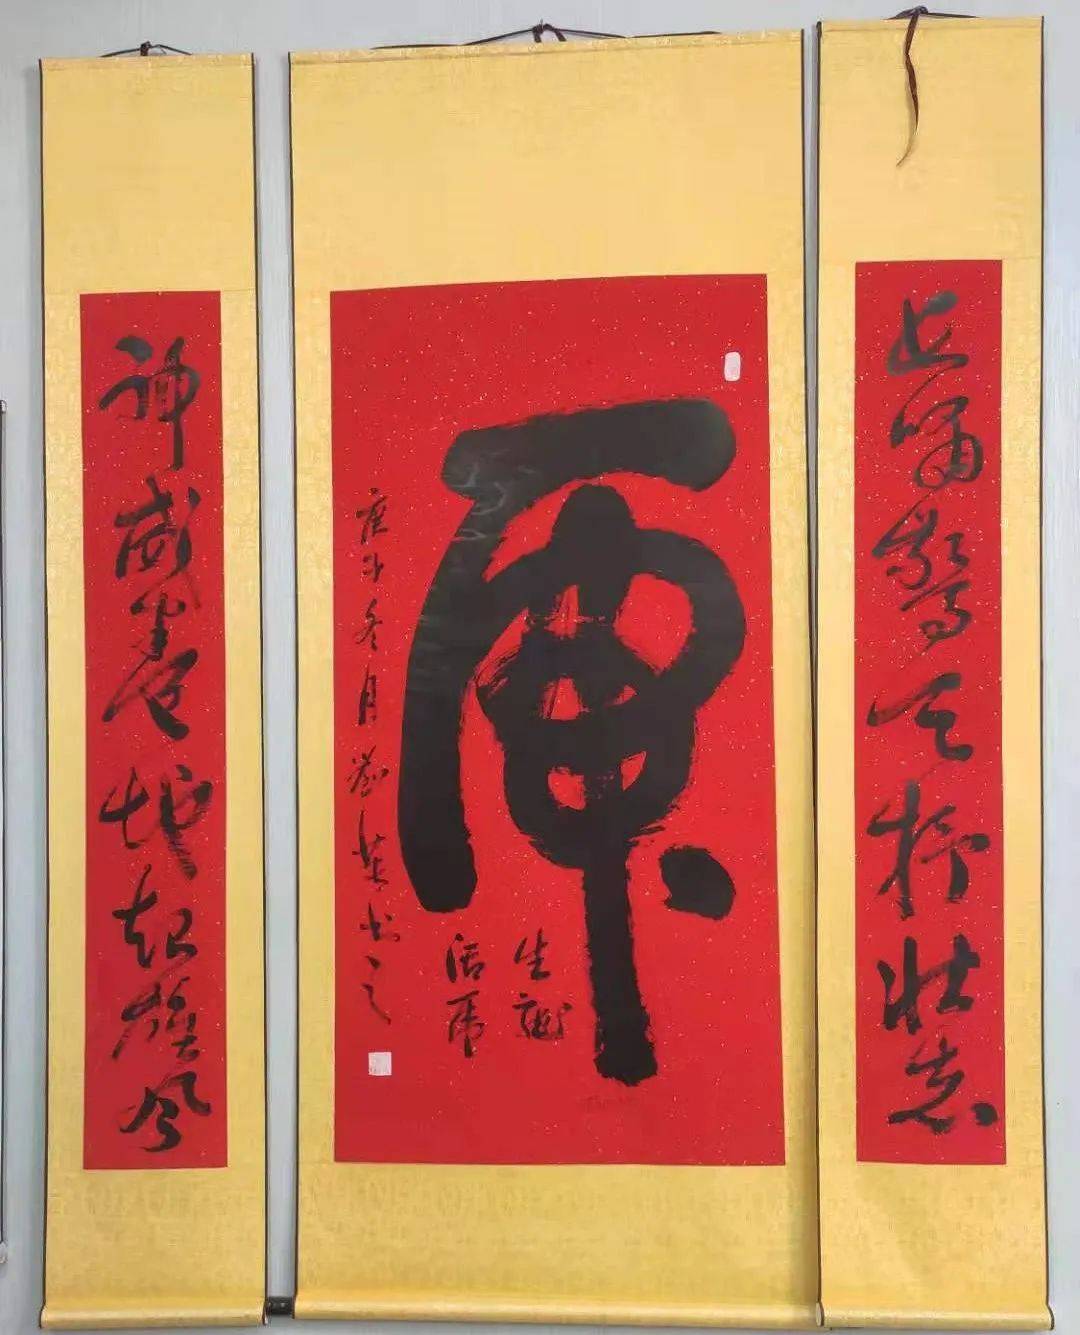 长啸驚天抒壮志
虎
生龙
活虎
庚子冬月刘英书之
神威卷地起雄风